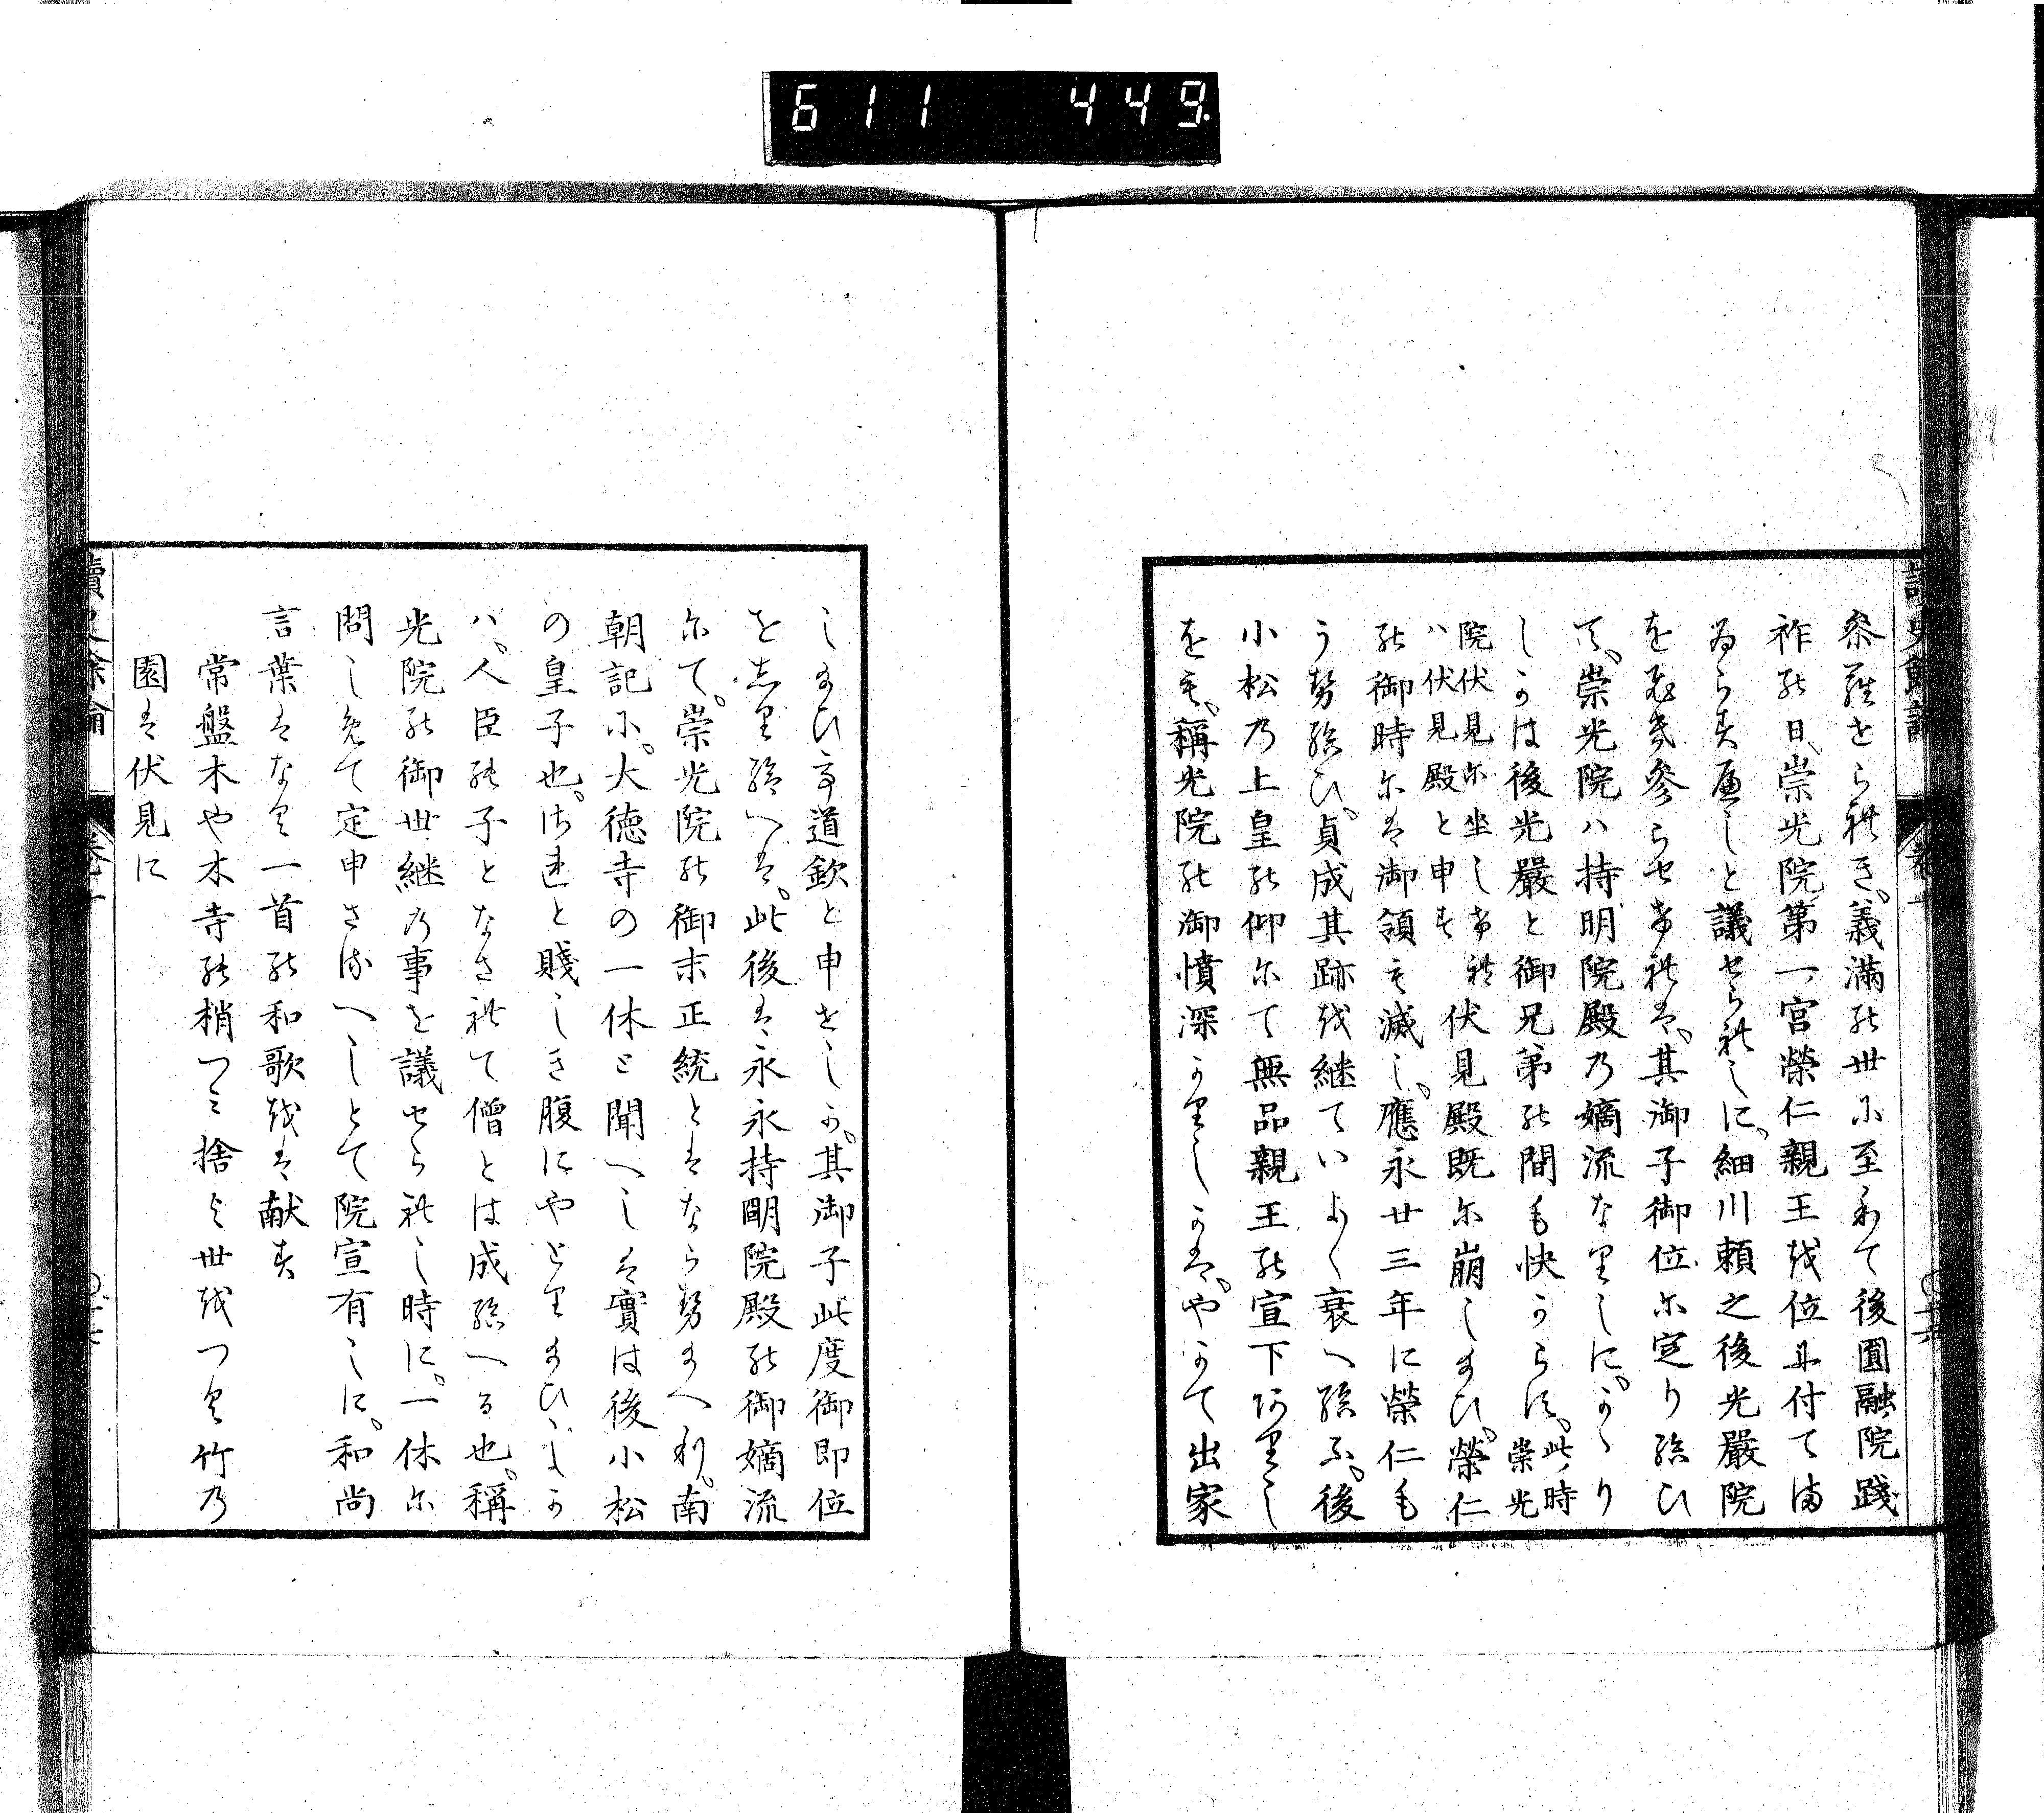 611 449
讀史餘論
參羅せられき、義滿の世に至りて後圓融院踐
祚の日、崇光院第一宮榮仁親王を位に付てま
ゐらすべしと議せられしに、細川頼之後光嚴院
をひき參らせければ、其御子御位に定り給ひ
て、崇光院ハ持明院殿の嫡流なりしに、かゝり
しかは後光嚴と御兄弟の間も快からす、此時崇光
院伏見に坐しければ伏見殿既に崩しまひ、榮仁
ハ伏見殿と申す
の御時には御領も減し、應永廿三年に榮仁も
うせ給ひ、貞成其跡を継ていよ〱衰へ給ふ、後
小松の上皇の仰にて無品親王の宣下ありし
をも、稱光院の御憤深かりしかば、やかて出家
しまひ道欽と申せしか、其御子此度御即位
をしり給へば、此後は永永持明院殿の御嫡流
にて、崇光院の御末正統とはならせまへり、南
朝記に、大徳寺の一休と聞へしは實は後小松
の皇子也、されと賤しき腹にやとりまひしか
ハ、人臣の子となされて僧とは成給へる也、稱
光院の御世継の事を議せられし時に、一休に
問しめて定申さるへしとて院宣有しに、和尚
言葉はなく一首の和歌をは献す
常盤木や木寺の梢つみ捨よ世をつく竹の
園は伏見に
讀史餘論